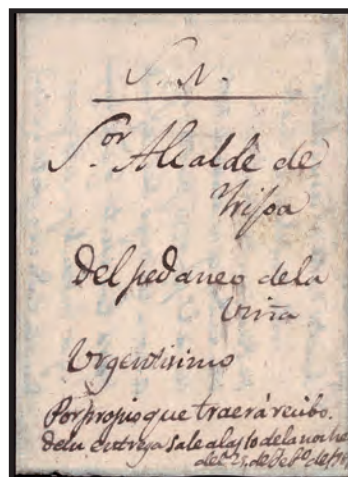 S. N.
S.or Alcalde de
del pedaneo dela
Viña
Urgentisimo
Por propio que traerá recibo.
dela entrega sale alas 10 de la noche
del 25. de Feb.o de